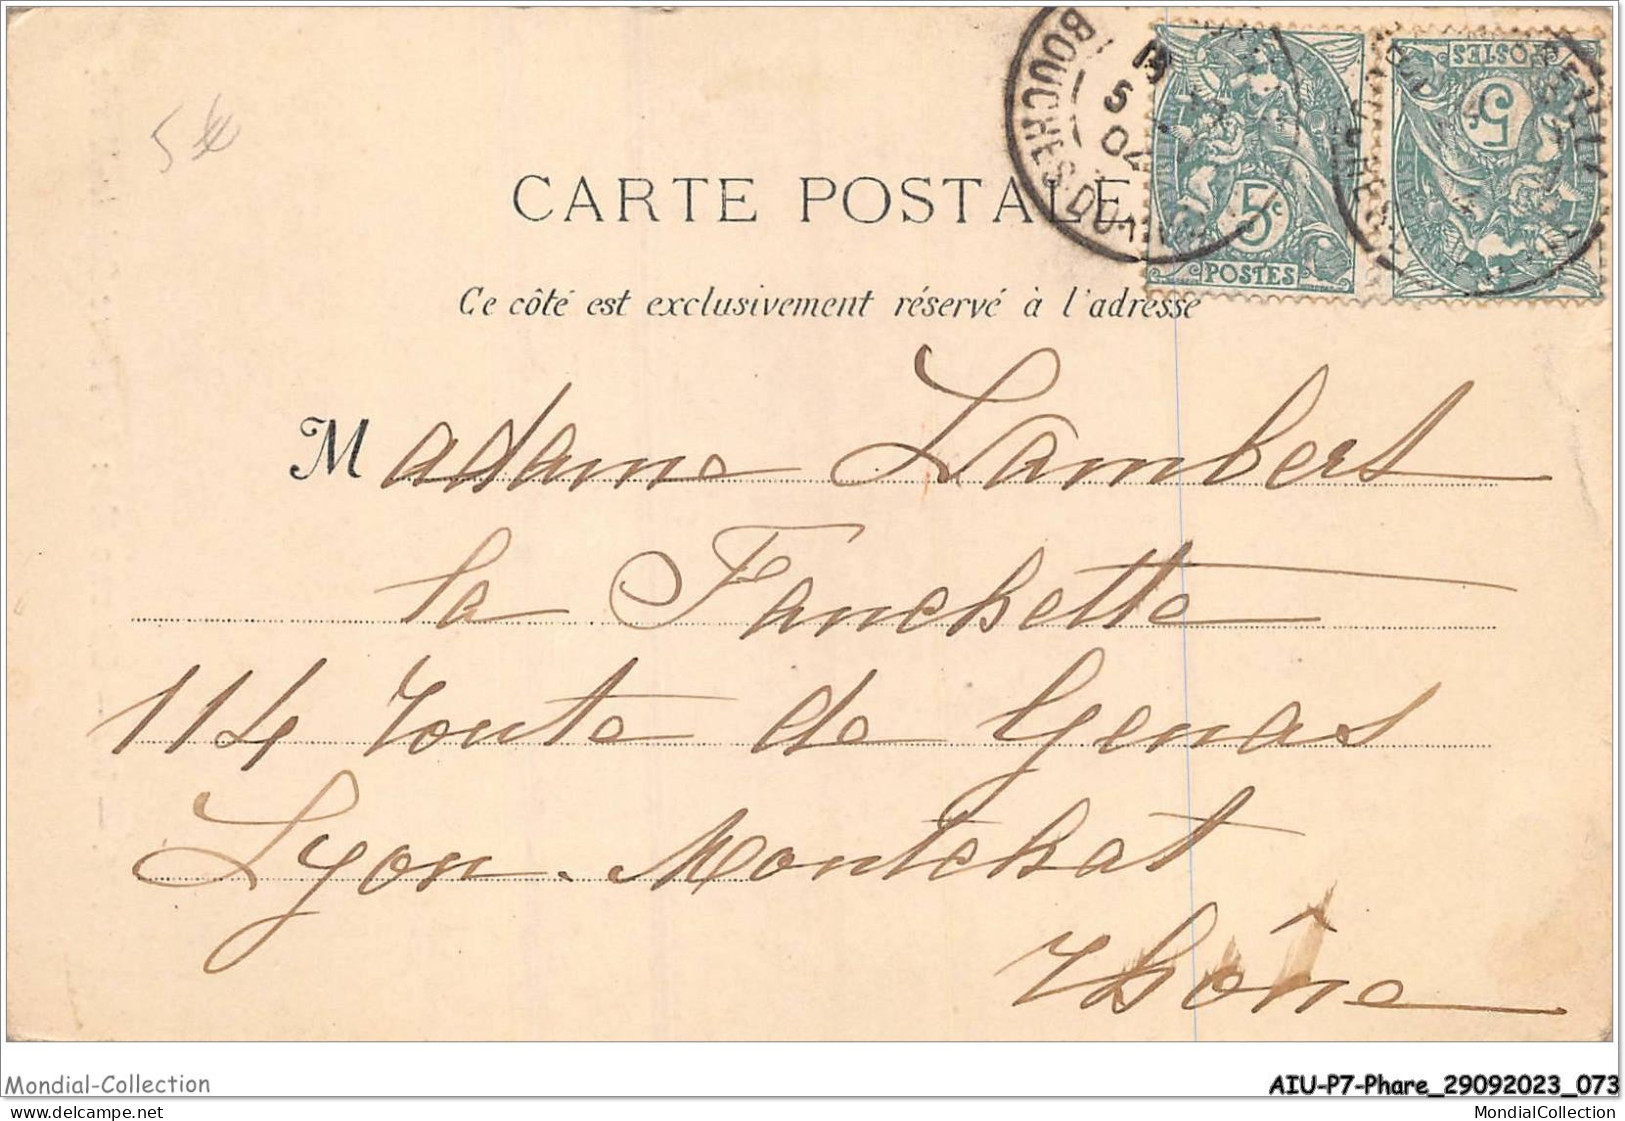 5
BOUCHES-DU-
5
04
5c
POSTES
POSTES
5
CARTE POSTALE
Ce côté est exclusivement réservé à l'adresse
Madame Lambert
la Fanchette
114 route de Genas
Lyon. Montchat
Rhône
Mondial-Collection
AIU-P7-Phare_29092023_073
MondialCollection